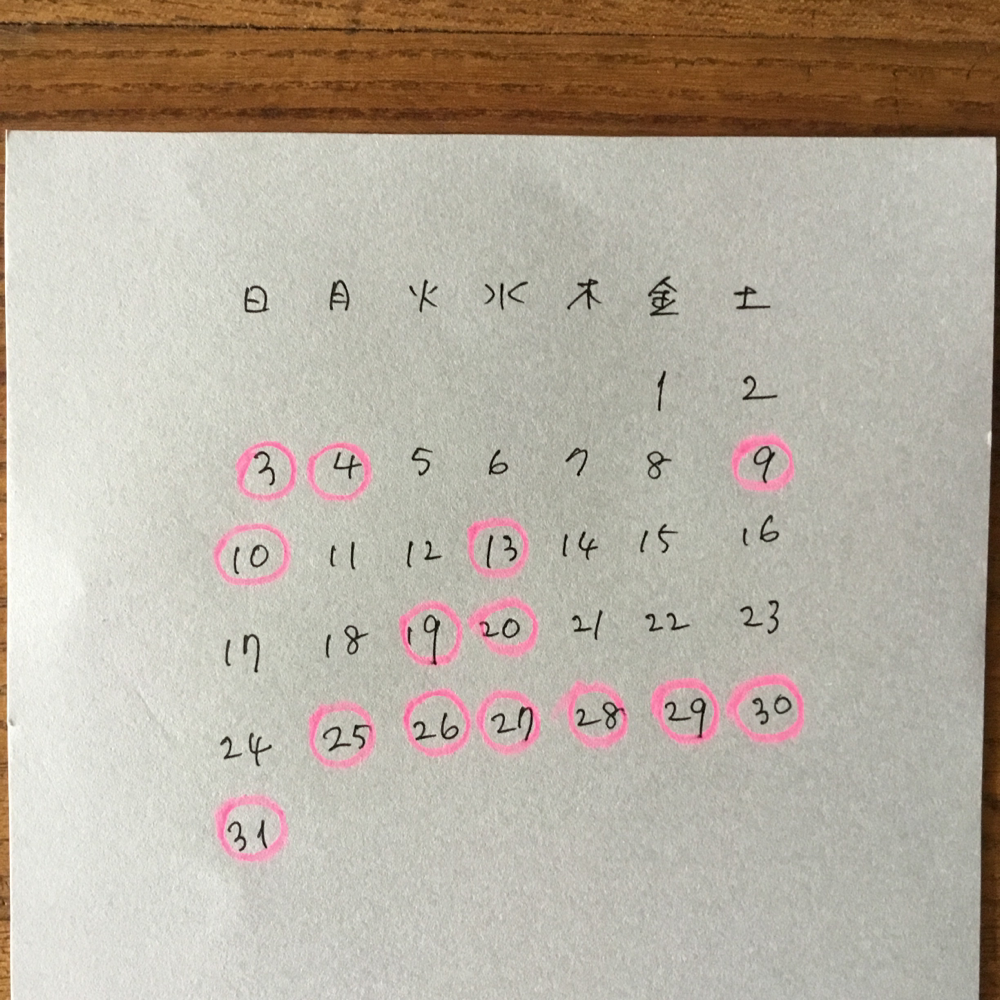 日 月 火 水 木 金 土
1 2
3 4 5 6 7 8 9
10 11 12 13 14 15 16
17 18 19 20 21 22 23
24 25 26 27 28 29 30
31